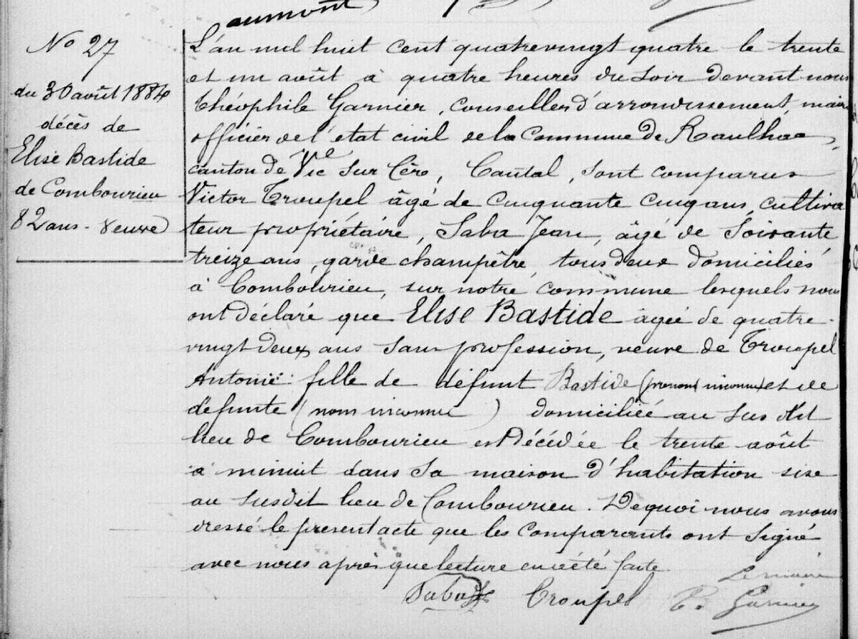 aumont
No 27
du 30 août 1884
décès de
Elise Bastide
de Combourieu
82 ans - veuve
L'an mil huit cent quatrevingt quatre le trente
et un août à quatre heures du soir devant nous
Théophile Garnier, conseiller d'arrondissement, maire
officier de l'état civil de la Commune de Raulhac,
canton de Vic sur Cère, Cantal, sont comparus
Victor Troupel âgé de Cinquante cinq ans, cultiva
teur propriétaire, Saba Jean, âgé de Soixante
treize ans, garde champêtre, tous deux domiciliés
à Combourieu, sur notre commune lesquels nous
ont déclaré que Elise Bastide âgée de quatre-
vingt deux ans sans profession, veuve de Troupel
Antoine fille de défunt Bastide (prenom inconnu) et de
défunte (nom inconnu) domiciliée au sus dit
lieu de Combourieu est décédée le trente août
à minuit dans sa maison d'habitation sise
au susdit lieu de Combourieu. De quoi nous avons
dressé le present acte que les comparants ont signé
avec nous après que lecture en a été faite
Le maire
Saba Troupel T. Garnier